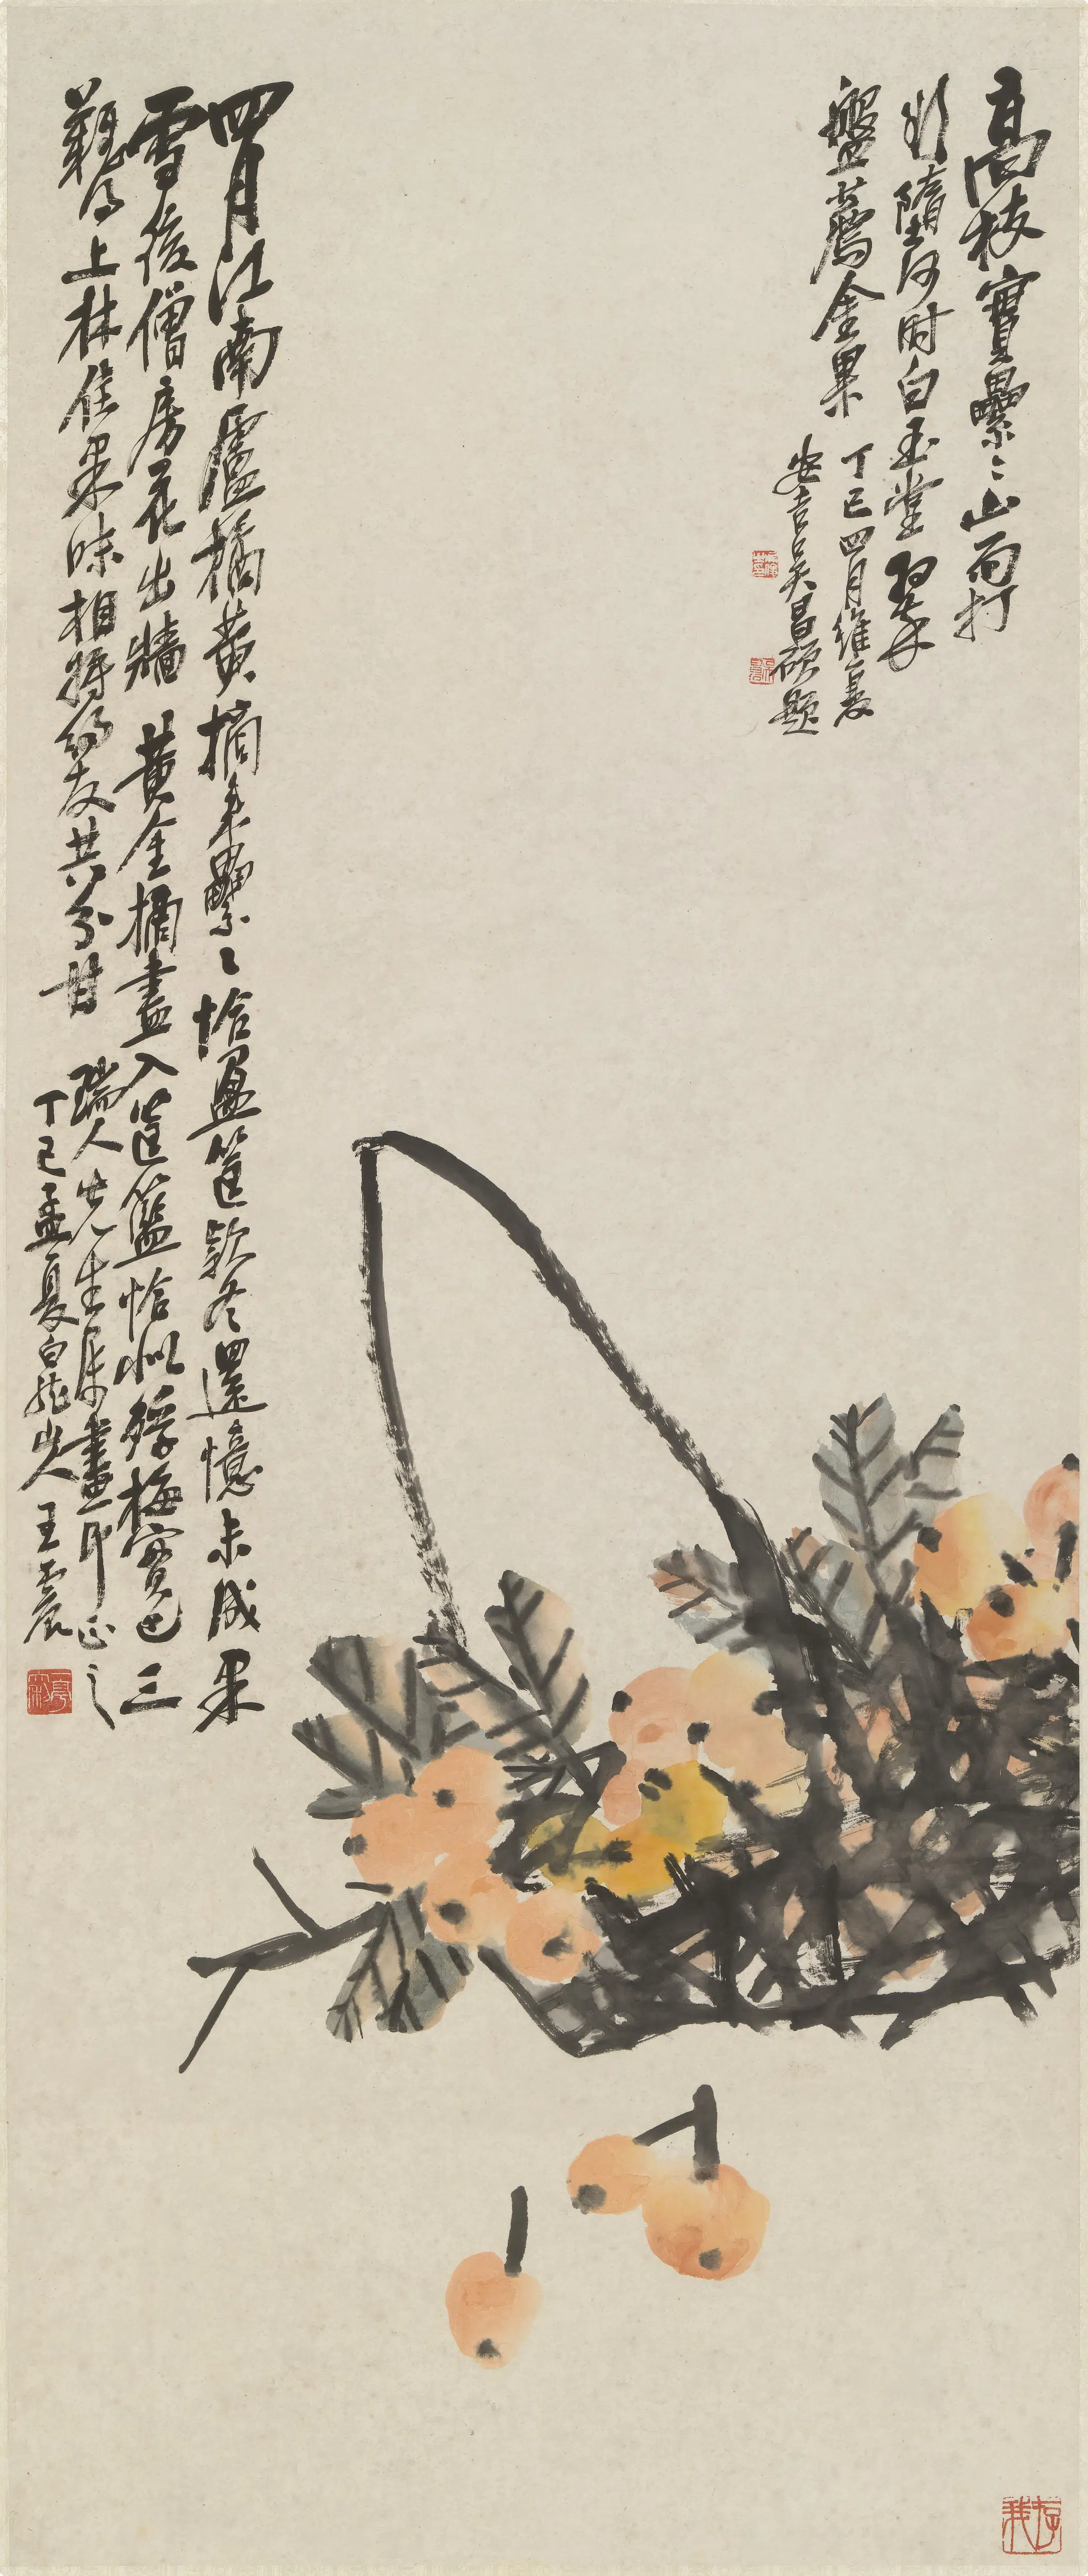 高枝實纍〻山雨打
影墮何時白玉堂翠
盤薦金果
丁巳四月維夏
安吉吳昌碩題
四月江南盧橘黃摘來纍〻恰盈筐款冬還憶未成果
雪後僧房花出牆 黃金摘盡入筐籃恰似殍梅實已三
羅得上林佳果味相將約友共分甘 瑞人先生屬畫即正之
丁巳孟夏白龍山人王震